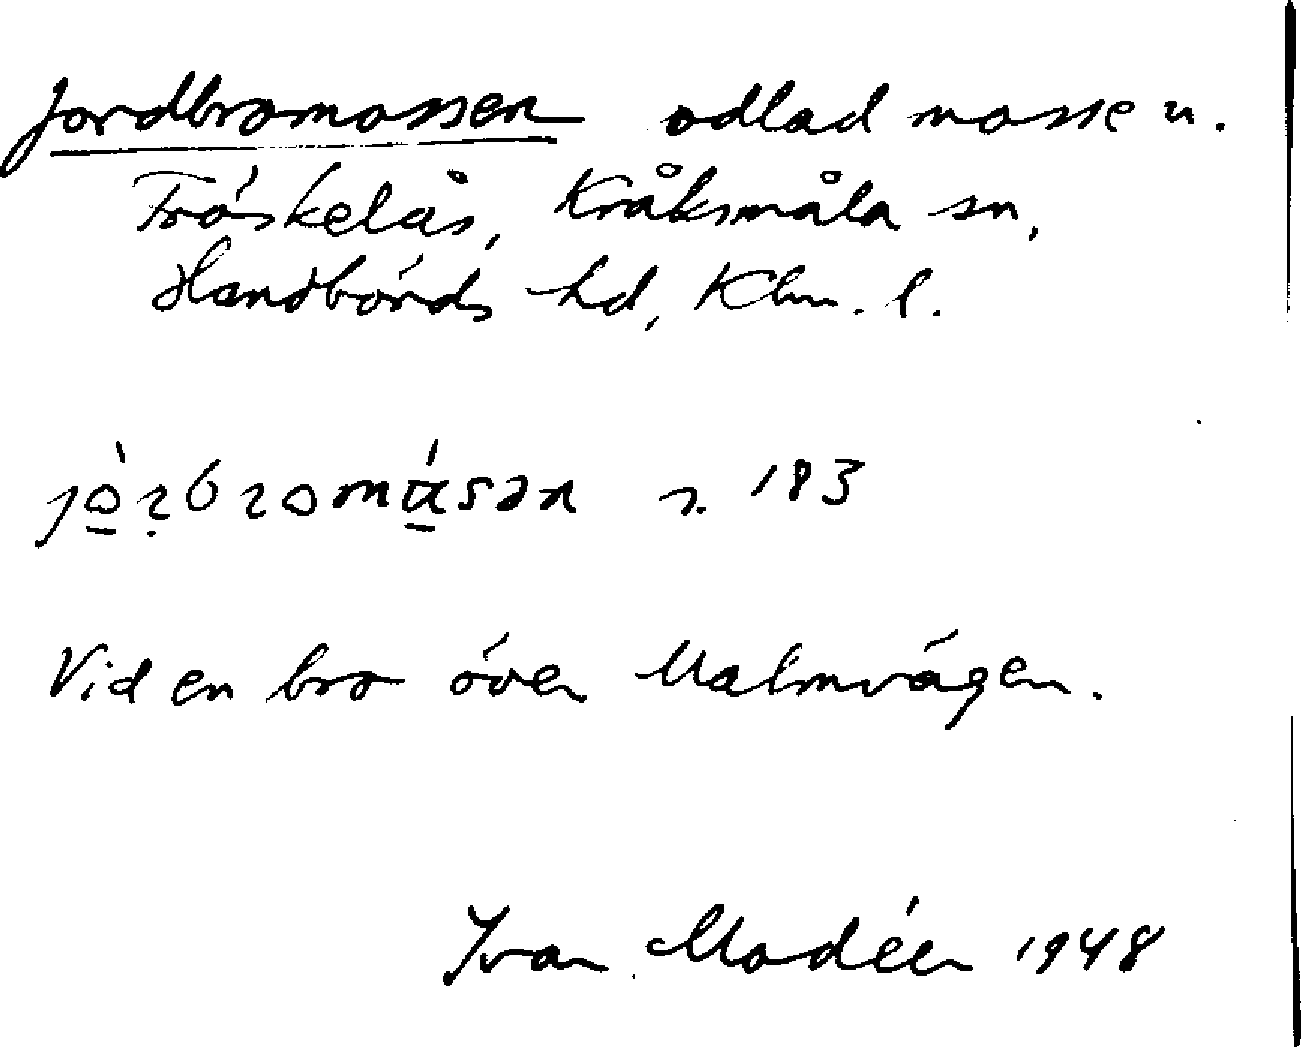 Jordbromossen odlad mosse u.
Fröskelås, Kråksmåla sn,
Handbörds hd, Klm. l.
s. 183
Vid en bro över Malmvägen.
Ivan Modéer 1948